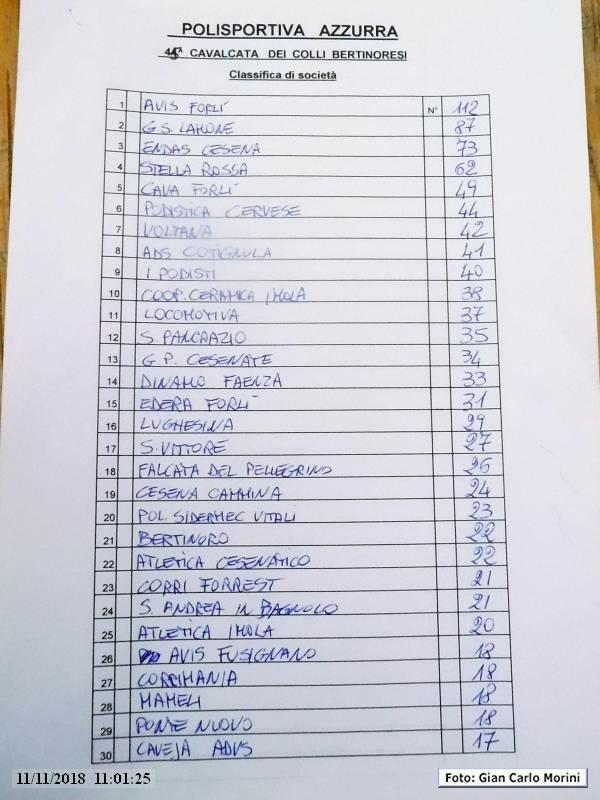 POLISPORTIVA AZZURRA
CAVALCATA DEI COLLI BERTINORESI
Classifica di società
1 AVIS FORLÍ N° 112
2 G.S. LAMONE 87
3 ENDAS CESENA 73
4 STELLA ROSSA 62
5 CAVA FORLÍ 49
6 PODISTICA CERVESE 44
7 VOLTANA 42
8 ADS COTIGNOLA 41
9 I PODISTI 40
10 COOP. CERAMICA IMOLA 38
11 LOCOMOTIVA 37
12 S. PANCRAZIO 35
13 G.P. CESENATE 34
14 DINAMO FAENZA 33
15 EDERA FORLÍ 31
16 LUGHESINA 29
17 S. VITTORE 27
18 FALCATA DEL PELLEGRINO 26
19 CESENA CAMMINA 24
20 POL. SIDERMEC VITALI 23
21 BERTINORO 22
22 ATLETICA CESENATICO 22
23 CORRI FORREST 21
24 S. ANDREA IN BAGNOLO 21
25 ATLETICA IMOLA 20
26 AVIS FUSIGNANO 18
27 CORRIMANIA 18
28 MAMELI 18
29 PONTE NUOVO 18
30 CAVEJA ADVS 17
11/11/2018 11:01:25
Foto: Gian Carlo Morini